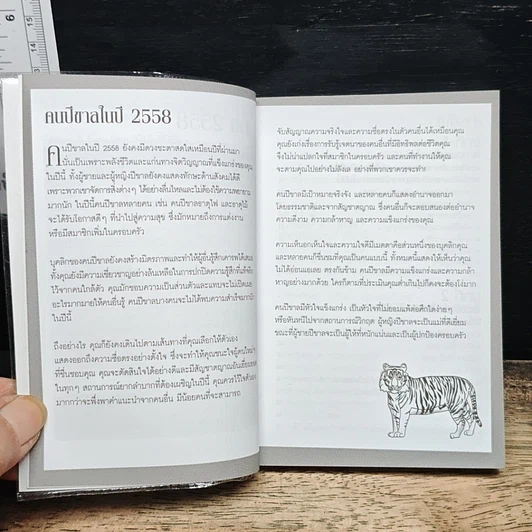 คนปีขาลในปี 2558
คนปีขาลในปี 2558 ยังคงมีดวงชะตาสดใสเหมือนปีที่ผ่านมา
นั่นเป็นเพราะพลังชีวิตและแก่นทางจิตวิญญาณที่แข็งแกร่งของคุณ
ในปีนี้ ทั้งผู้ชายและผู้หญิงปีขาลยังคงแสดงทักษะด้านสังคมได้ดี
เพราะพวกเขาจัดการสิ่งต่างๆ ได้อย่างลื่นไหลและไม่ต้องใช้ความพยายาม
มากนัก ในปีนี้คนปีขาลหลายคน เช่น คนปีขาลธาตุไฟ และธาตุไม้
จะได้รับโอกาสดีๆ ที่นำไปสู่ความสุข ซึ่งมักหมายถึงการแต่งงาน
หรือมีสมาชิกเพิ่มในครอบครัว
บุคลิกของคนปีขาลยังคงสร้างมิตรภาพและทำให้ผู้อื่นรู้สึกเคารพได้เสมอ
ทั้งคุณยังมีความเชี่ยวชาญอย่างล้นเหลือในการปกปิดความรู้สึกที่แท้จริง
ไว้จากคนใกล้ตัว คุณมักชอบความเป็นส่วนตัวและแทบจะไม่เปิดเผย
อะไรมากมายให้คนอื่นรู้ คนปีขาลบางคนจะไม่ได้พบความสำเร็จมากนัก
ในปีนี้
ถึงอย่างไร คุณก็ยังคงเดินไปตามเส้นทางที่คุณเลือกให้ตัวเอง
แสดงออกถึงความซื่อตรงอย่างตั้งใจ ซึ่งจะทำให้คุณชนะใจผู้คนใหม่ๆ
ที่ชื่นชอบคุณ คุณจะตัดสินใจได้อย่างดีและมีสัญชาตญาณอันเยี่ยมยอด
ในทุกๆ สถานการณ์ยากลำบากที่ต้องเผชิญในปีนี้ คุณควรไว้ใจตัวเอง
มากกว่าจะพึ่งพาคำแนะนำจากคนอื่น มีน้อยคนที่จะสามารถ
จับสัญญาณความจริงใจและความซื่อตรงในตัวคนอื่นได้เหมือนคุณ
คุณยังเก่งเรื่องการรับรู้เจตนาของคนอื่นที่มีอิทธิพลต่อชีวิตคุณ
จึงไม่น่าแปลกใจที่สมาชิกในครอบครัว และคนที่ทำงานให้คุณ
จะตามคุณไปอย่างไม่ลังเล อย่างที่พวกเขาควรจะทำ!
คนปีขาลมีเป้าหมายจริงจัง และหลายคนก็แสดงอำนาจออกมา
โดยธรรมชาติและจากสัญชาตญาณ ซึ่งคนอื่นก็จะตอบสนองต่ออำนาจ
ความดีงาม ความกล้าหาญ และความแข็งแกร่งของคุณ
ความเห็นอกเห็นใจและความใจดีมีเมตตาคือส่วนหนึ่งของบุคลิกคุณ
และหลายคนก็ชื่นชมที่คุณเป็นคนแบบนี้ ทั้งหมดนี้แสดงให้เห็นว่าคุณ
ไม่ได้อ่อนแอเลย ตรงกันข้าม คนปีขาลมีความแข็งแกร่งและความกล้า
หาญอย่างมากด้วย ใครก็ตามที่ประเมินคุณต่ำเกินไปก็คงจะต้องโง่มาก
คนปีขาลมีหัวใจแข็งแกร่ง เป็นหัวใจที่ไม่ยอมแพ้ต่อศึกใดง่ายๆ
หรือหันหนีไปจากสถานการณ์วิกฤต ผู้หญิงปีขาลจะเป็นแม่ที่ดีเยี่ยม
ขณะที่ผู้ชายปีขาลจะเป็นผู้ให้ที่หนักแน่นและเป็นผู้ปกป้องครอบครัว
6
15
14